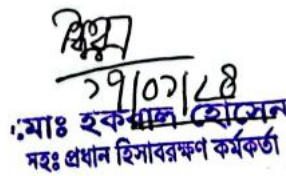 ২৭/০১/২৪
মোঃ ইকবাল হোসেন
সহঃ প্রধান হিসাবরক্ষণ কর্মকর্তা